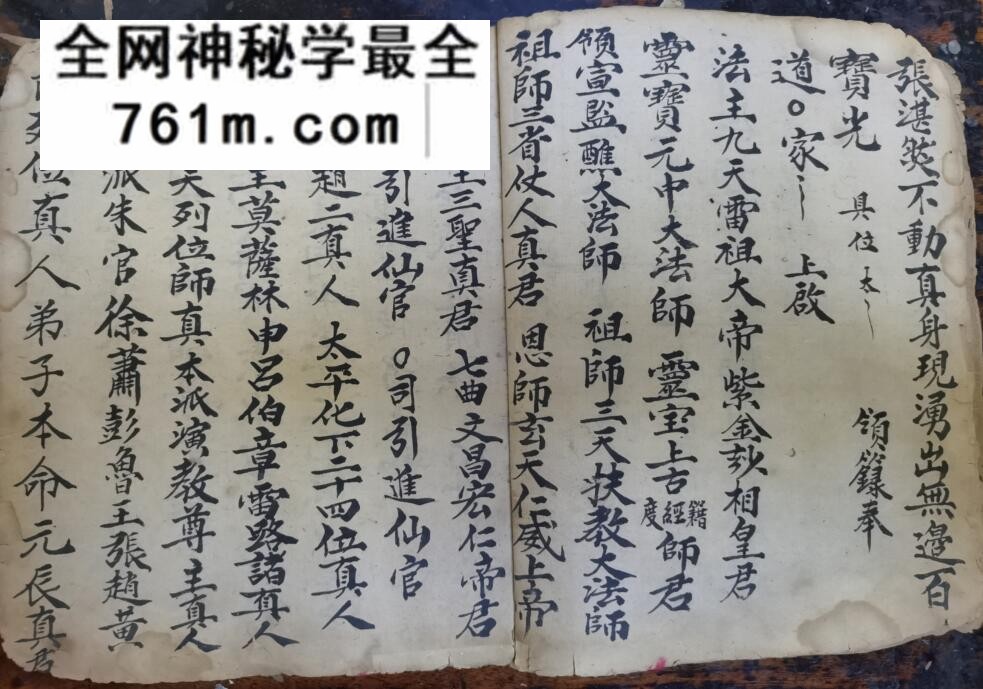 全网神秘学最全
761m.com
張湛然不動真身現湧出無邊百
寶光 具位太 領籙奉
道○家 上啟
法主九天雷祖大帝 紫金玅相皇君
靈寶元中大法師 靈宝上古經籍度師君
領宣監醮大法師 祖師三天扶教大法師
祖師三省仗人真君 恩師玄天仁威上帝
三聖真君 七曲文昌宏仁帝君
引進仙官 ○司引進仙官
趙二真人 太平化下二十四位真人
主莫薩林申呂伯章雷路諸真人
列位師真本派演教尊主真人
派朱官徐蕭彭魯王張趙黃
列位真人弟子本命元辰真君